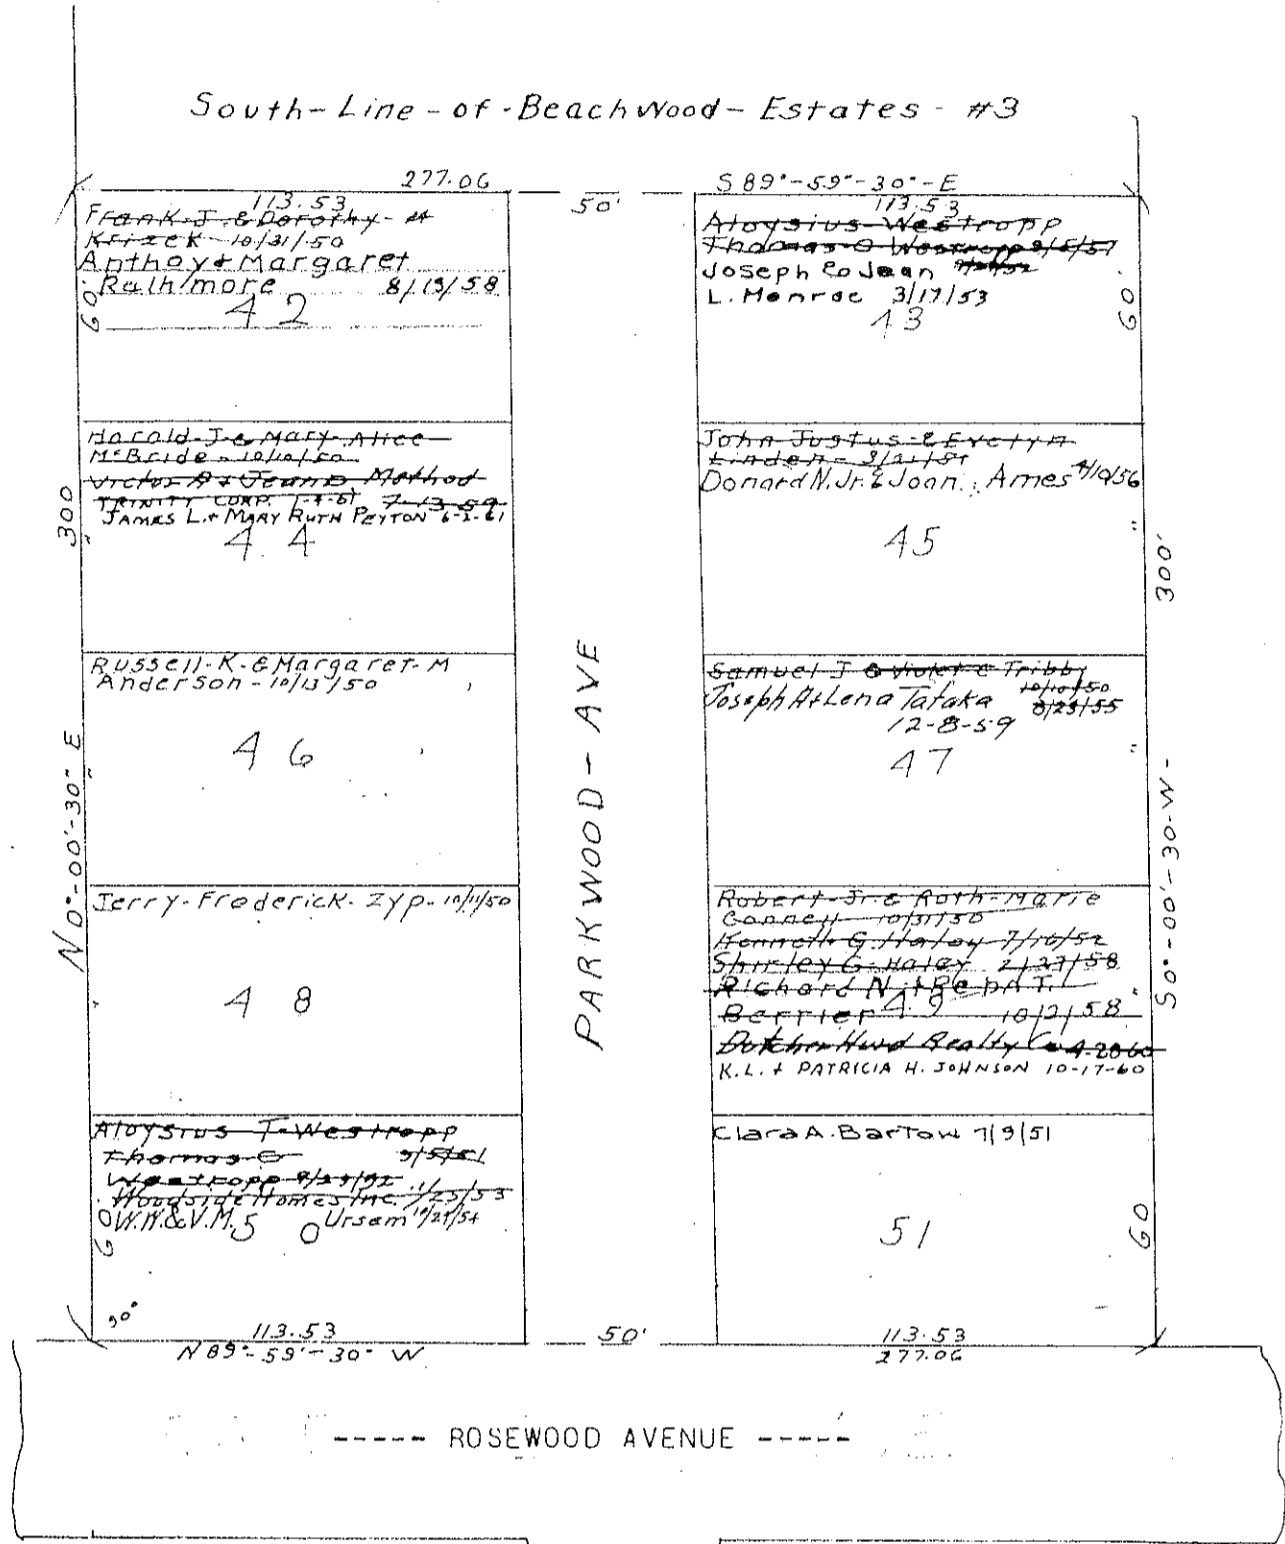 South-Line-of-BeachWood-Estates-#3
277.06
50'
S 89°-59'-30"-E
113.53
Frank-J.&Dorothy-
Krizek-10/31/50
Anthoy+Margaret
Ralhmore 8/13/58
42
60'
113.53
Aloysius-Westropp
Thomas-O Westropp 9/5/51
Joseph & Jean
L. Monroe 3/17/53
43
60
Harold-J-&Mary-Alice
McBride-10/10/50
Victor A+Jeanne Method
TRINITY CORP. 1-4-61 7-13-59
JAMES L.+ MARY RUTH PEYTON 6-2-61
44
300
John-Justus-&Evelyn
Linden- 9/21/51
Donard N. Jr. & Joan. Ames 4/10/56
45
"
300'
Russell-K-&Margaret-M
Anderson-10/13/50
46
N 0°-00'-30" E
PARKWOOD-AVE
Samuel J & Violet C Tribby
10/10/50
Joseph A+Lena Tataka 8/25/55
12-8-59
47
"
S 0°-00'-30-W-
Jerry-Frederick-Zyp-10/11/50
48
Robert-Jr & Ruth-Marie
Connell 10/31/50
Kenneth G. Haley 7/16/52
Shirley G. Haley 2/27/58
Richard N.+ T.
Berrier 49 10/2/58
Realty Co 4-28-60
K.L.+ PATRICIA H. JOHNSON 10-17-60
"
Aloysius T-Westropp
Thomas-O 9/5/51
Westropp
Woodside Homes Inc. 11/25/53
W.W.&V.M. Ursem
50
60
90°
113.53
N 89°-59'-30" W
50'
Clara A. Bartow 7/9/51
51
60
113.53
277.06
----- ROSEWOOD AVENUE -----